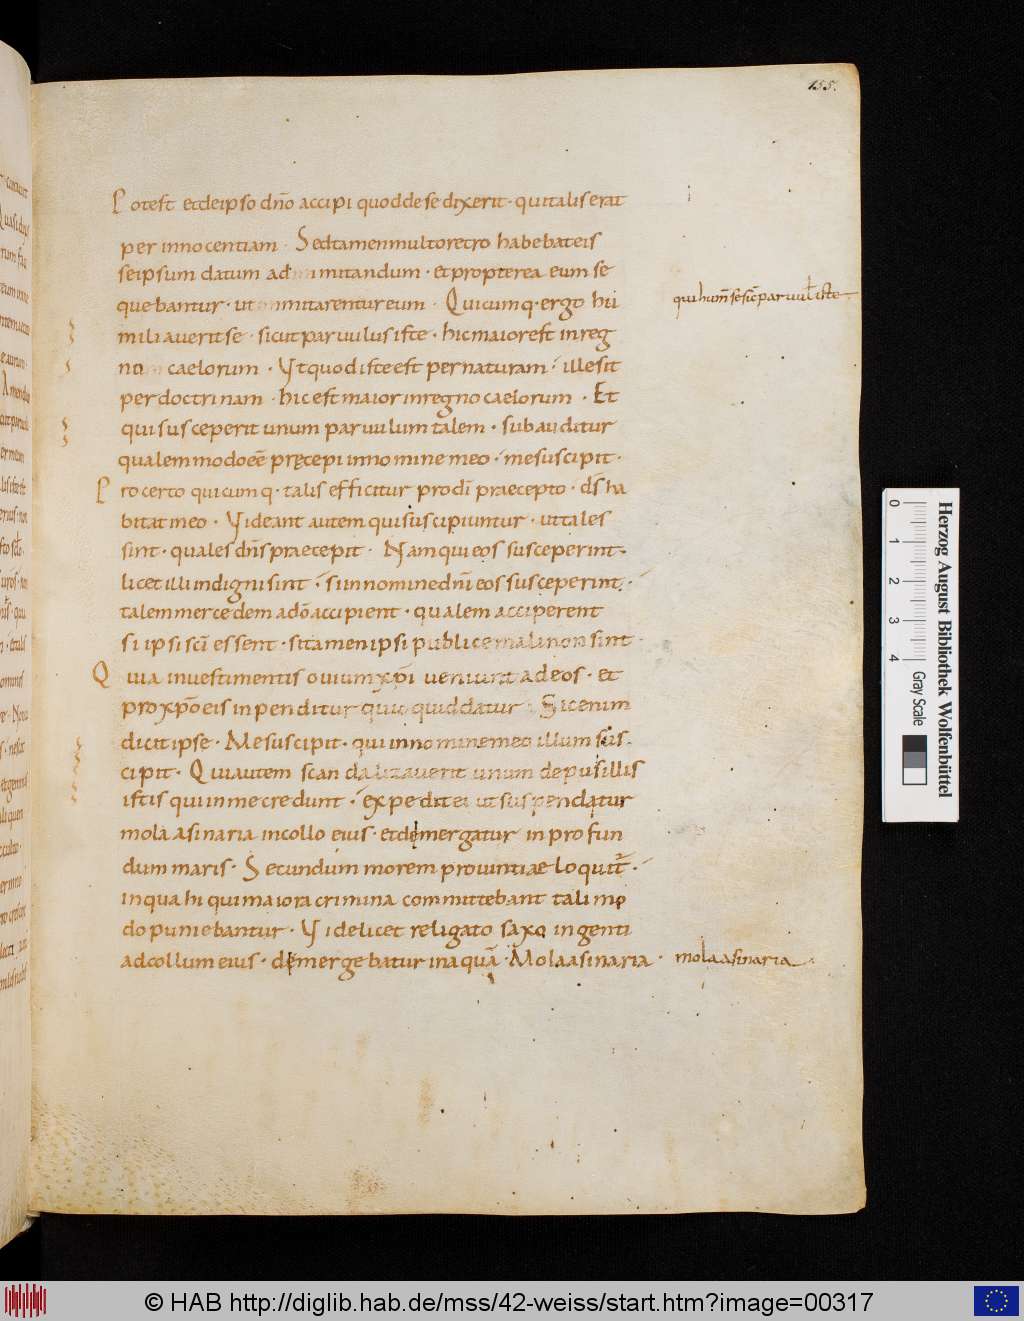 155.
Potest et de ipso dño accipi quod de se dixerit · qui talis erat
per innocentiam · Sed tamen multo retro habebat eis
seipsum datum ad imitandum · et propterea eum se
quebantur · ut imitarentur eum · Quicumq· ergo hu
miliaverit se · sicut parvulus iste · hic maior est in reg
no caelorum · Ut quod iste est per naturam · ille sit
per doctrinam · hic est maior in regno caelorum · Et
qui susceperit unum parvulum talem · subauditur
qualem modo eē pręcepi in nomine meo · me suscipit ·
Pro certo quicumq· talis efficitur pro dī praecepto · d̄s ha
bitat in eo · Videant autem qui suscipiuntur · ut tales
sint · quales dñs praecepit · Nam qui eos susceperint ·
licet illi indigni sint · si in nomine dñi eos susceperint ·
talem mercedem a dō accipient · qualem acciperent
si ipsi scī essent · si tamen ipsi publice mali non sint ·
Quia in vestimentis ovium xp̄i veniunt ad eos · et
pro xp̄o eis inpenditur quicquid datur · Sic enim
dicit ipse · Me suscipit · qui in nomine meo illum sus
cipit · Qui autem scandalizaverit unum de pusillis
istis qui in me credunt · expedit ei ut suspendatur
mola asinaria in collo eius · et demergatur in profun
dum maris · Secundum morem provintiae loquit̄ ·
in qua hi qui maiora crimina committebant tali mo
do puniebantur · Videlicet religato saxo ingenti
ad collum eius · demergebatur in aquā · Mola asinaria ·
qui hum̄ se sic̄ parvul iste
mola asinaria
Herzog August Bibliothek Wolfenbüttel
0 1 2 3 4
Gray Scale
© HAB http://diglib.hab.de/mss/42-weiss/start.htm?image=00317